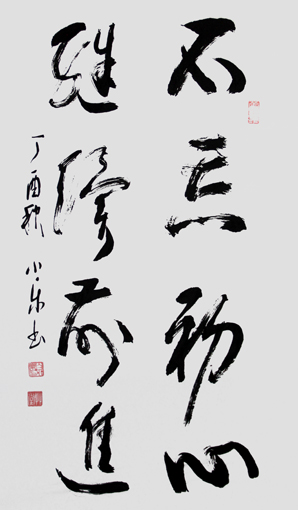 不忘初心
继续前进
丁酉秋 小东书